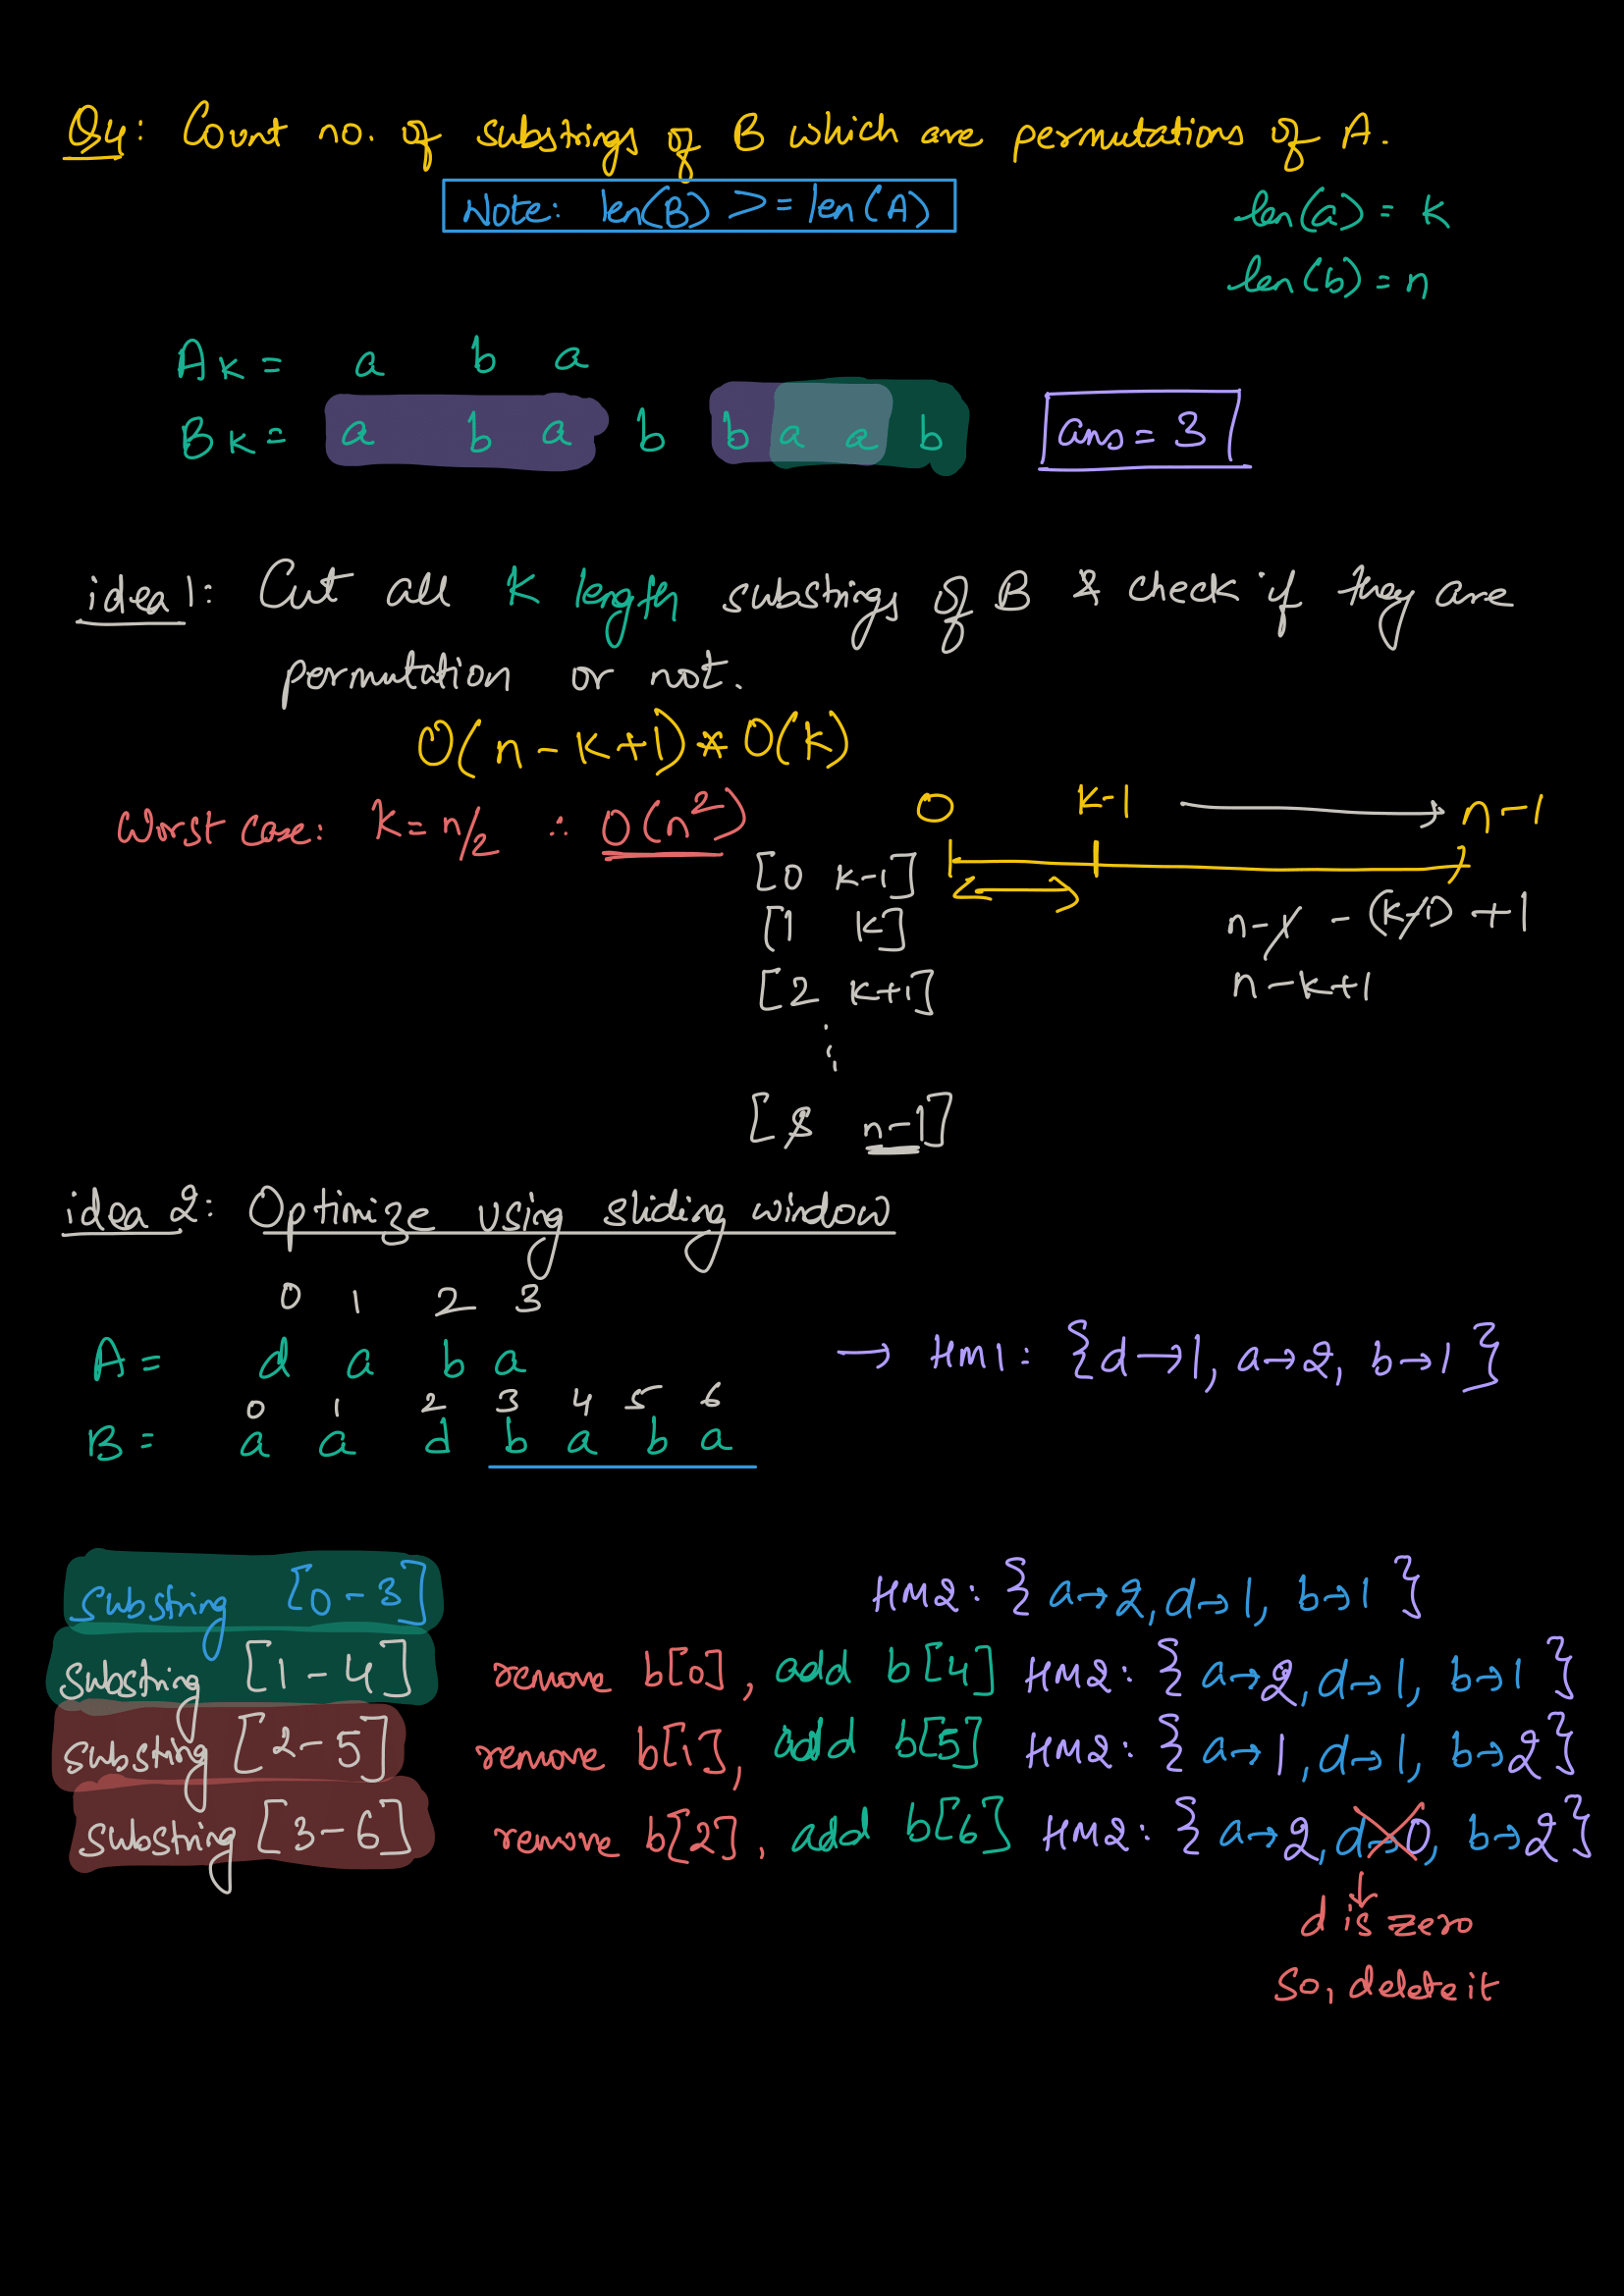 Q4: Count no. of substrings of B which are permutations of A.
Note: len(B) >= len(A)
len(a) = k
len(b) = n
Ak = a b a
Bk = a b a b b a a b
ans = 3
idea 1: Cut all K length substrings of B & check if they are
permutation or not.
O(n-k+1) * O(k)
Worst case: K = n/2 ∴ O(n²)
0 k-1 → n-1
[0 k-1]
[1 k]
[2 k+1]
n-1 - (k-1) + 1
n-k+1
[s n-1]
idea 2: Optimize using sliding window
0 1 2 3
A = d a b a → HM1: {d→1, a→2, b→1}
0 1 2 3 4 5 6
B = a a d b a b a
substring [0-3] HM2: {a→2, d→1, b→1}
substring [1-4] remove b[0], add b[4] HM2: {a→2, d→1, b→1}
substring [2-5] remove b[1], add b[5] HM2: {a→1, d→1, b→2}
substring [3-6] remove b[2], add b[6] HM2: {a→2, d→0, b→2}
↓
d is zero
so, delete it